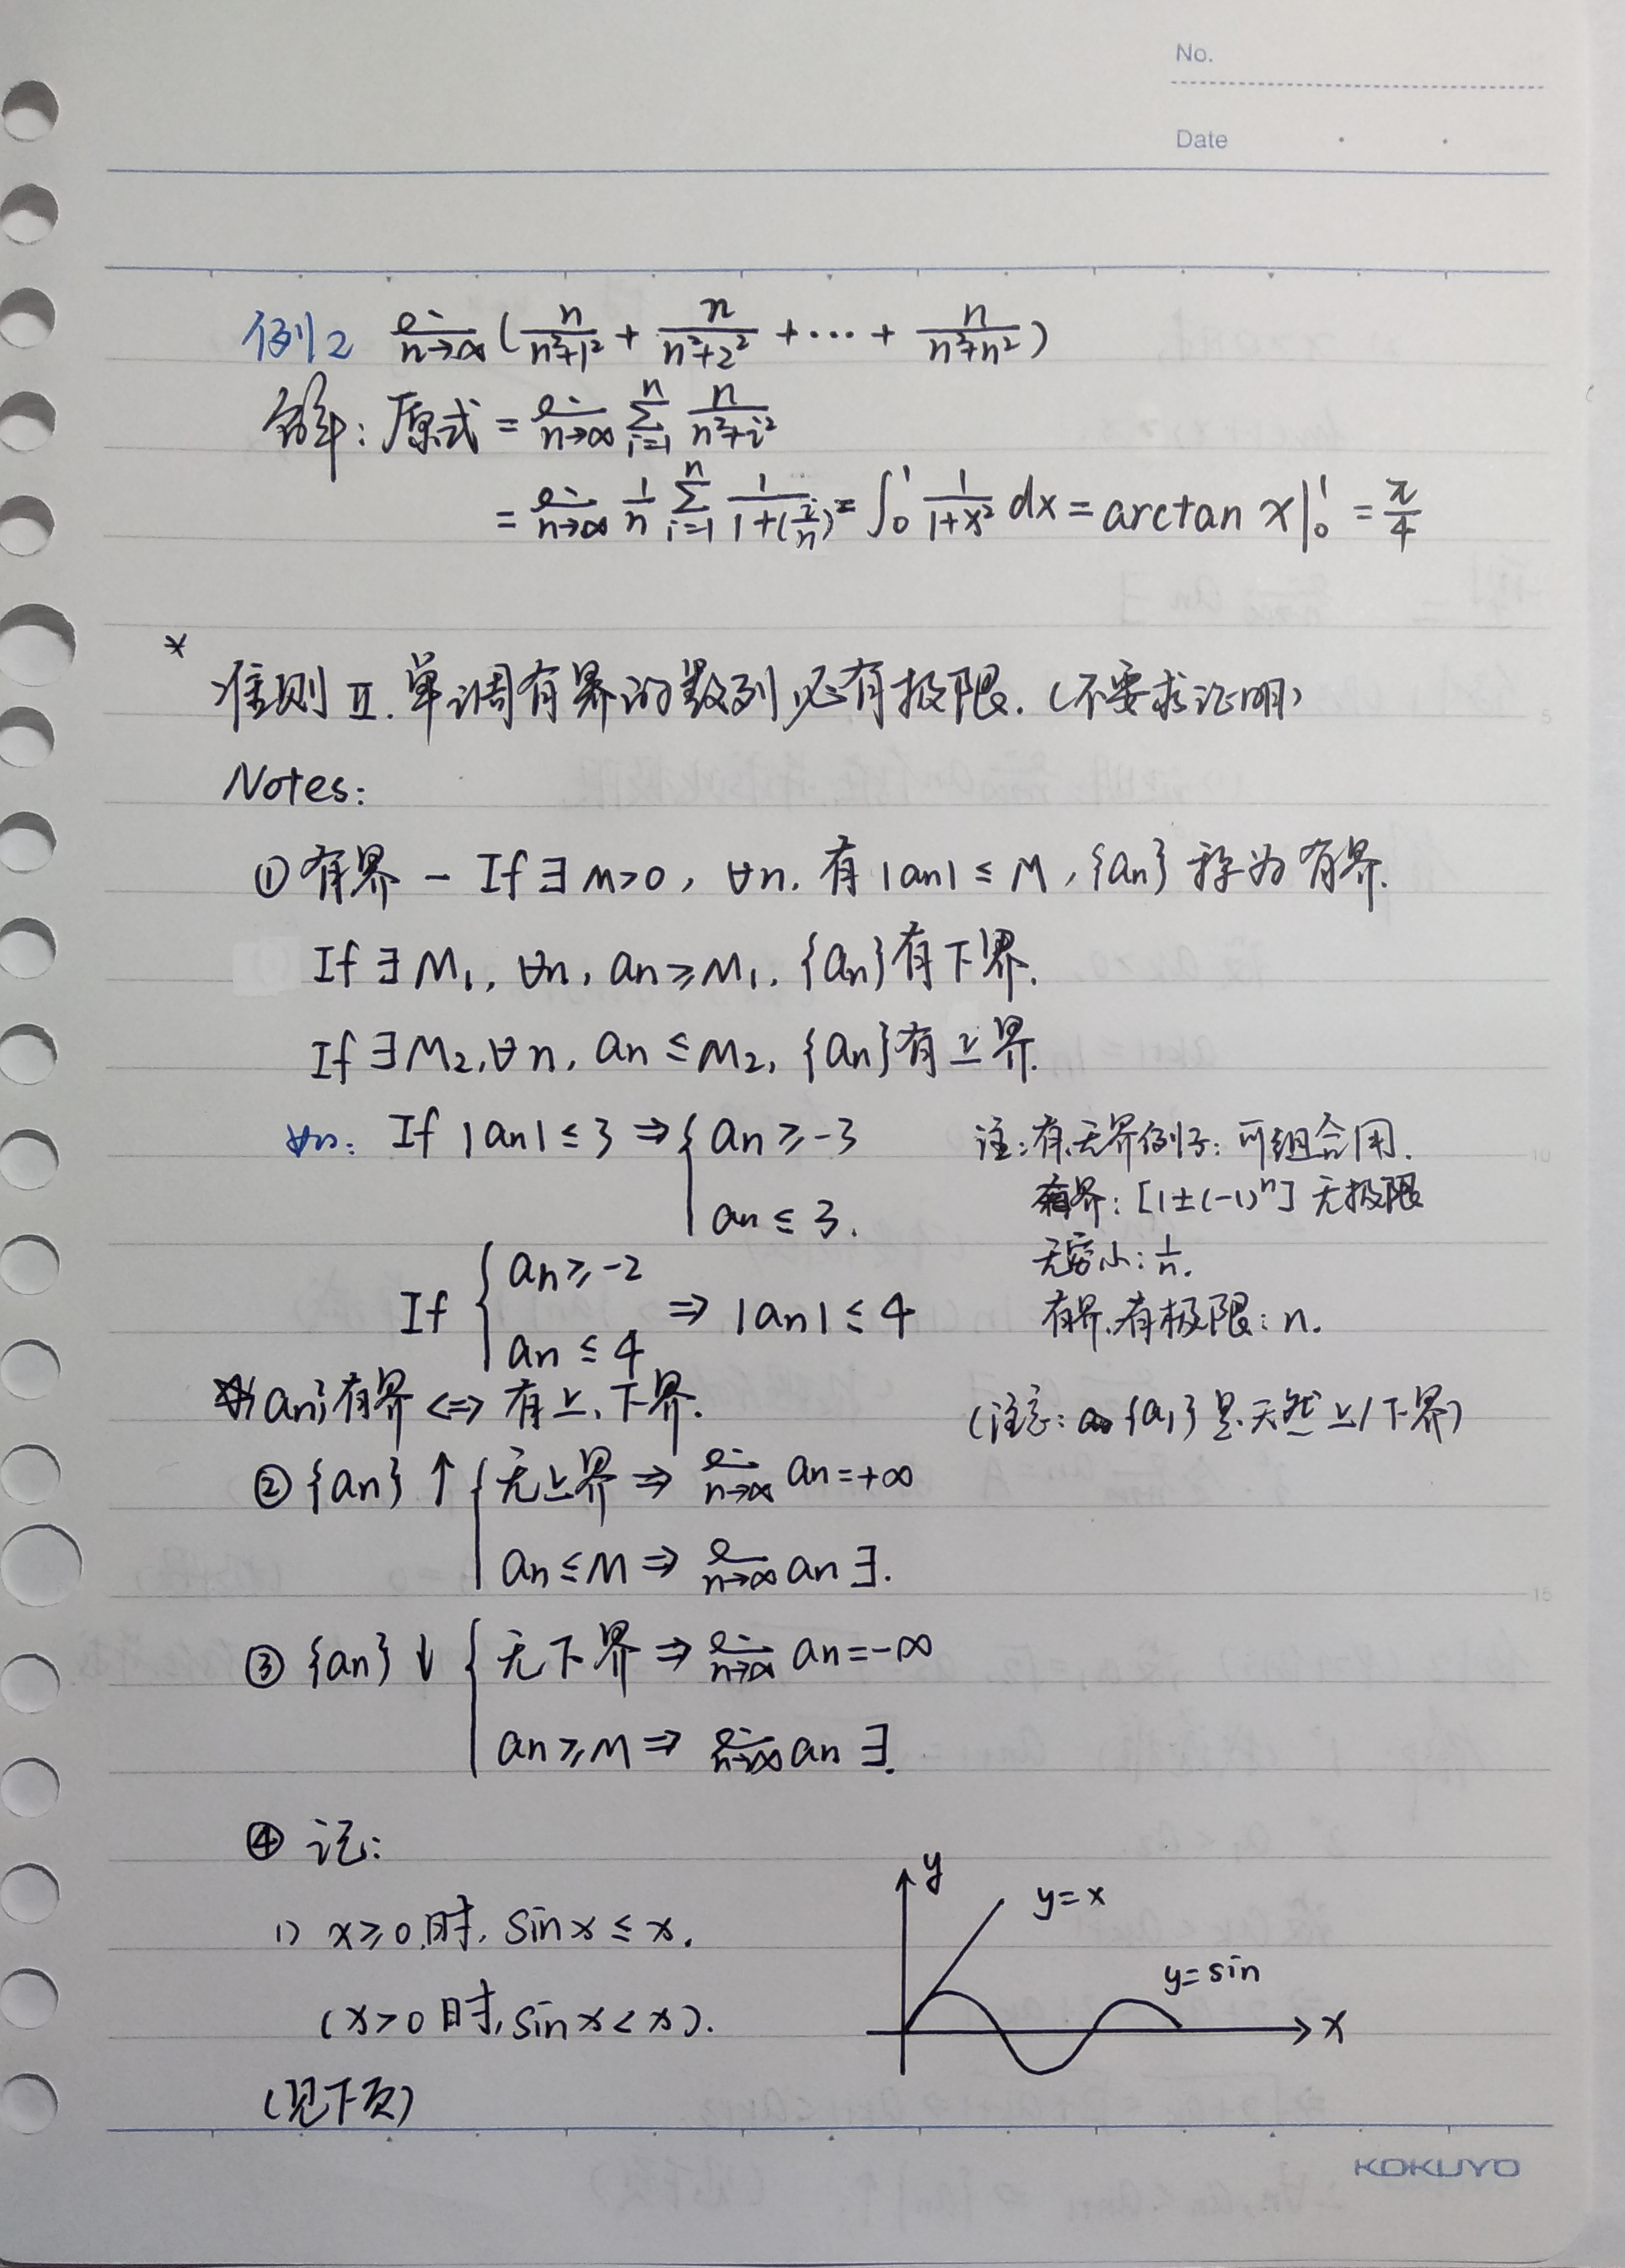 No.
Date
例2 lim n→∞ (n/(n²+1²) + n/(n²+2²) + ⋯ + n/(n²+n²))
解: 原式 = lim n→∞ Σ i=1 n n/(n²+i²)
= lim n→∞ 1/n Σ i=1 n 1/(1+(i/n)²) = ∫₀¹ 1/(1+x²) dx = arctan x |₀¹ = π/4
*
准则 II. 单调有界的数列必有极限. (不要求证明)
Notes:
① 有界 - If ∃ M>0, ∀n, 有 |an| ≤ M, {an} 称为有界.
If ∃ M₁, ∀n, an ≥ M₁, {an} 有下界.
If ∃ M₂, ∀n, an ≤ M₂, {an} 有上界.
如: If |an| ≤ 3 ⇒ { an ≥ -3
an ≤ 3.
If { an ≥ -2
an ≤ 4 ⇒ |an| ≤ 4
注: 有、无界例子: 可组合用.
有界: [1±(-1)ⁿ] 无极限
无穷小: 1/n.
有界、有极限: n.
{an} 有界 <=> 有上、下界.
(注意: {a₁} 是天然上/下界)
② {an} ↑ { 无上界 ⇒ lim n→∞ an = +∞
an ≤ M ⇒ lim n→∞ an ∃.
③ {an} ↓ { 无下界 ⇒ lim n→∞ an = -∞
an ≥ M ⇒ lim n→∞ an ∃.
④ 记:
1) x ≥ 0 时, sin x ≤ x.
(x > 0 时, sin x < x).
(见下页)
y
y = x
y = sin
x
5
10
15
KOKUYO